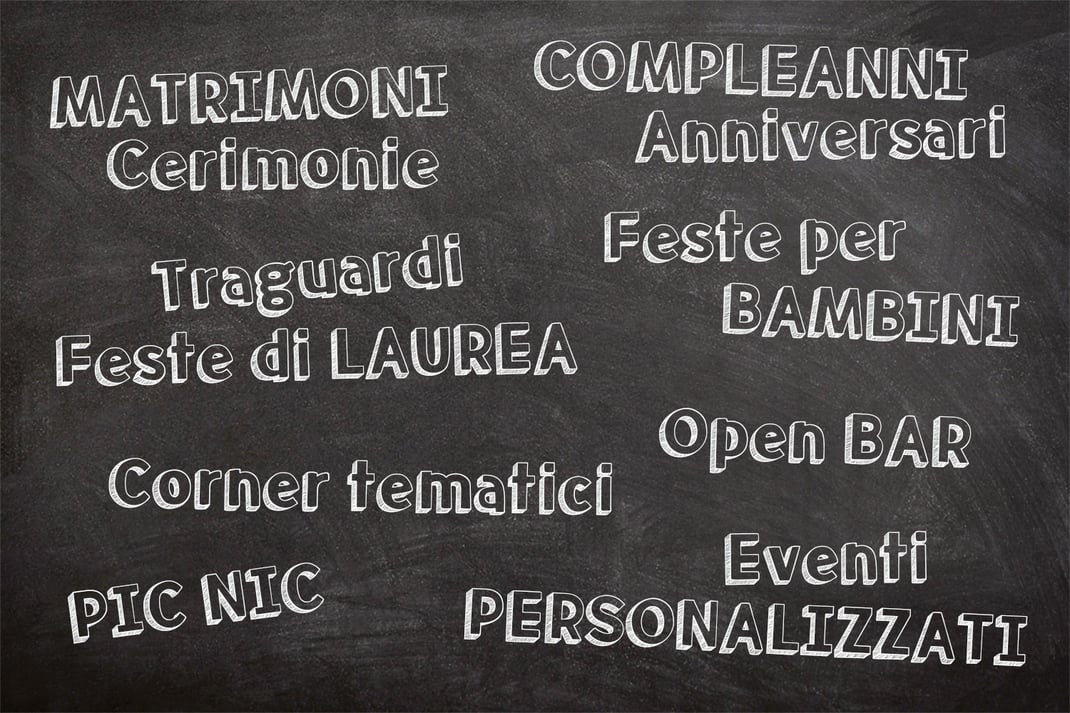 MATRIMONI
Cerimonie
COMPLEANNI
Anniversari
Traguardi
Feste di LAUREA
Feste per
BAMBINI
Corner tematici
Open BAR
PIC NIC
Eventi
PERSONALIZZATI